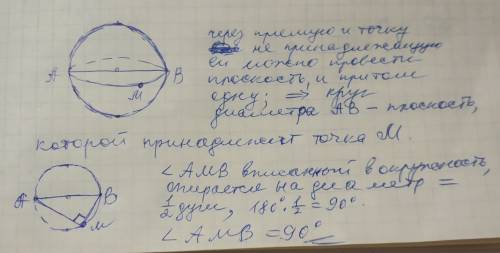 через прямую и точку
не принадлежащую
ей можно провести
плоскость, и притом
одну; ⇒ круг
диаметра AB – плоскость,
которой принадлежит точка M.
A B M
∠AMB вписанной в окружность,
опирается на диаметр =
1/2 дуги, 180° · 1/2 = 90°.
∠AMB = 90°
A B M